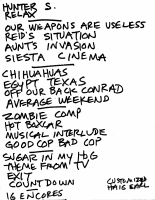 HUNTER S.
RELAX
OUR WEAPONS ARE USELESS
REID'S SITUATION
AUNT'S INVASION
SIESTA CINEMA
CHIHUAHUAS
EGYPT TEXAS
OFF OUR BACK CONRAD
AVERAGE WEEKEND
ZOMBIE COMP
HOT BOXCAR
MUSICAL INTERLUDE
GOOD COP BAD COP
SUGAR IN MY HOG
THEME FROM TV
EXIT
COUNTDOWN
16 ENCORES
CUSTOMIZED
HAIG EARL